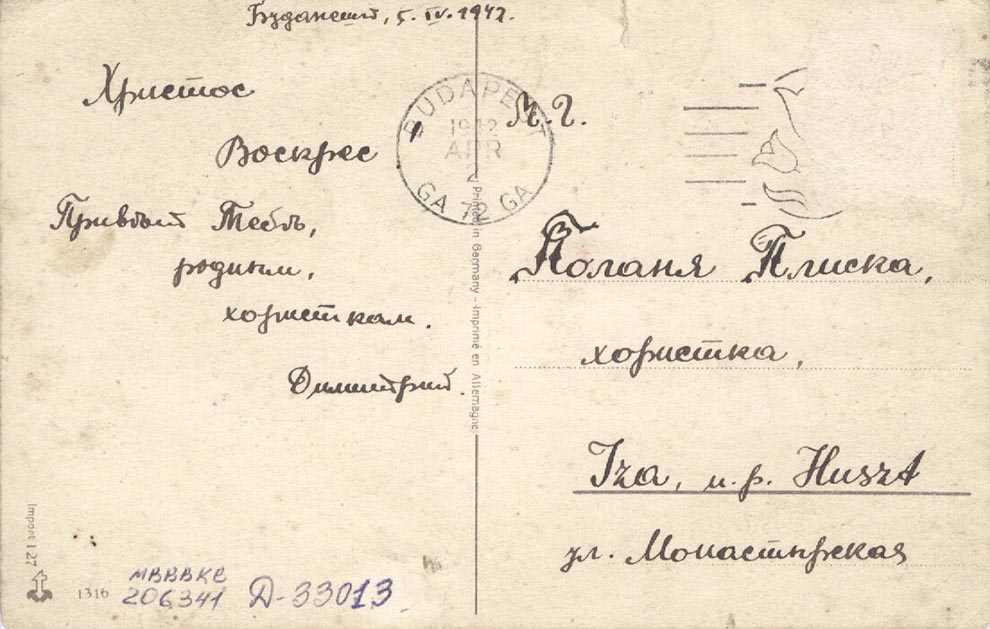 Будапешт, 5. IV. 1942.
Христос
Воскрес
Привѣт Тебѣ,
родным,
хористкам.
Димитрий.
BUDAPEST
1942
APR
GA 72 GA
Printed in Germany - Imprimé en Allemagne
М. Г.
Поланя Плиска,
хористка,
Iza, u.p. Huszt
ул. Монастырская
Import I 27
1316
МВВВКВ
206341
Д-33013